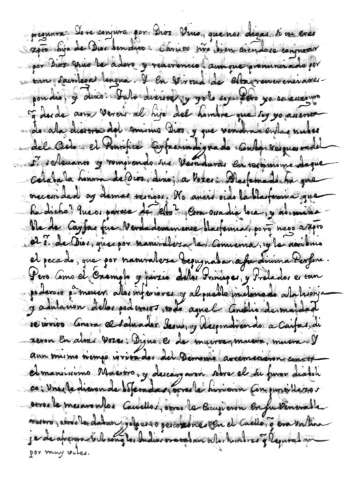 pregunta: Io te conjuro por Dios Vivo, que nos digas si tu eres
Xpto. hijo de Dios bendito. Christo nro. bien oiendose conjurar
por Dios Vivo le adoro, y reverencio, aunque pronunciado por
tan sacrilega lengua. Y en Virtud de esta reverencia res-
pondio, y dixo: Tu lo dixiste, y yo lo soy. Pero yo os asseguro
q desde aora Vereis al hijo del hombre que soy yo assenta-
do ala diestra del mismo Dios, y que vendra en las nubes
del Cielo. El Pontifice Cayfas indignado
y rompiendo sus Vestiduras en testimonio de que
Celaba la honra de Dios, dixo a Vozes: Blasfemado ha que
necesidad ay de mas testigos. No aueis oido la blasfemia, que
ha dicho? Que os parece de esto? Esta osadia loca, y abomina-
ble de Cayfas fue Verdaderamente blasfemia, porq nego a Xpto
el de Dios, que por naturaleza le Convenia, y le atribuio
el pecado, que por naturaleza repugnaba a su divina Persona.
Pero como el Exemplo y juizio delos Principes, y Prelados es tan
poderoso p.a mover alos inferiores y al pueblo inclinado a la lisonja
y adulacion delos poderosos, todo aquel Concilio de maldad
se irrito Contra el Salvador Jesus, y respondiendo a Caifas, di-
xeron en altas Vozes: Digno es de muerte, muera, muera. Y
aun mismo tiempo irritados del Demonio arremetieron contra
el mansissimo Maestro, y descargaron sobre el su furor diaboli-
co: Unos le dieron de bofetadas, otros le hirieron con puntillazos
otros le mesaron los Cavellos, otros le Escupieron En su Venerable
rostro, otros le daban golpes o pescozones En el Cuello, q era un lina-
je de afrenta Vil con q los Judios trataban a los hombres q reputaban
por muy viles.